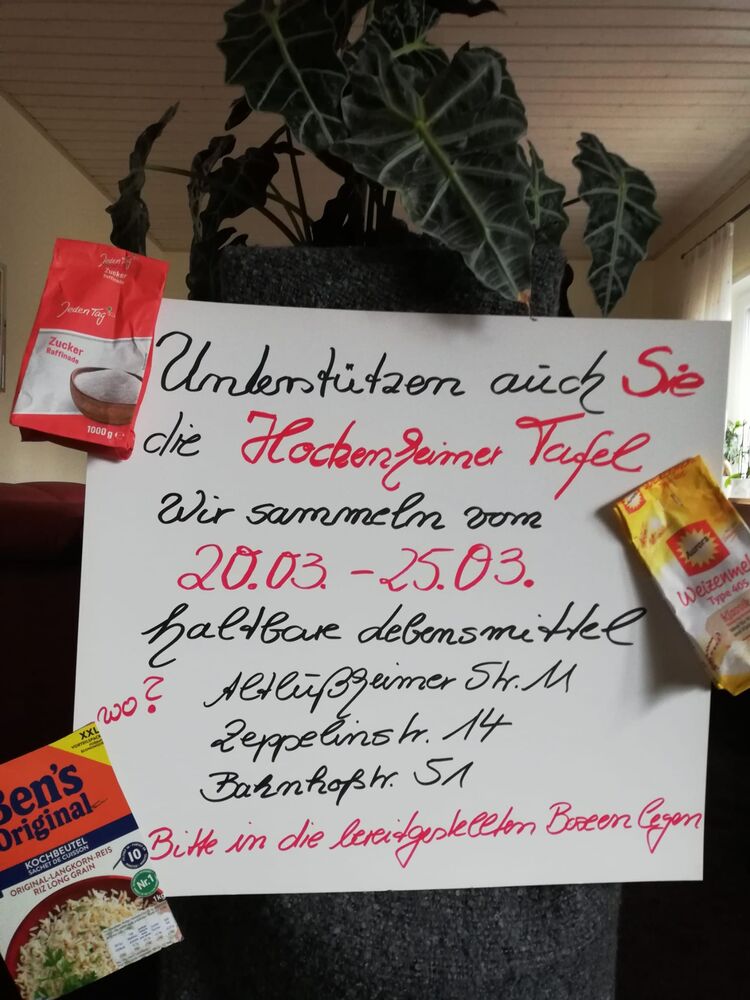 Jeden Tag
Zucker
Raffinade
Jeden Tag
Zucker
Raffinade
1000 g e
Unterstützen auch Sie
die Hockenheimer Tafel
Wir sammeln vom
20.03. - 25.03.
haltbare Lebensmittel
wo? Altlußheimer Str. 11
Zeppelinstr. 14
Bahnhofstr. 51
Bitte in die bereitgestellten Boxen legen
Aurora
Weizenme
Type 405
XXL
Ben's
Original
KOCHBEUTEL
SACHET DE CUISSON
ORIGINAL-LANGKORN-REIS
RIZ LONG GRAIN
10
Nr.1
1kg